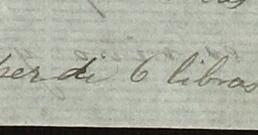 per di 6 libras